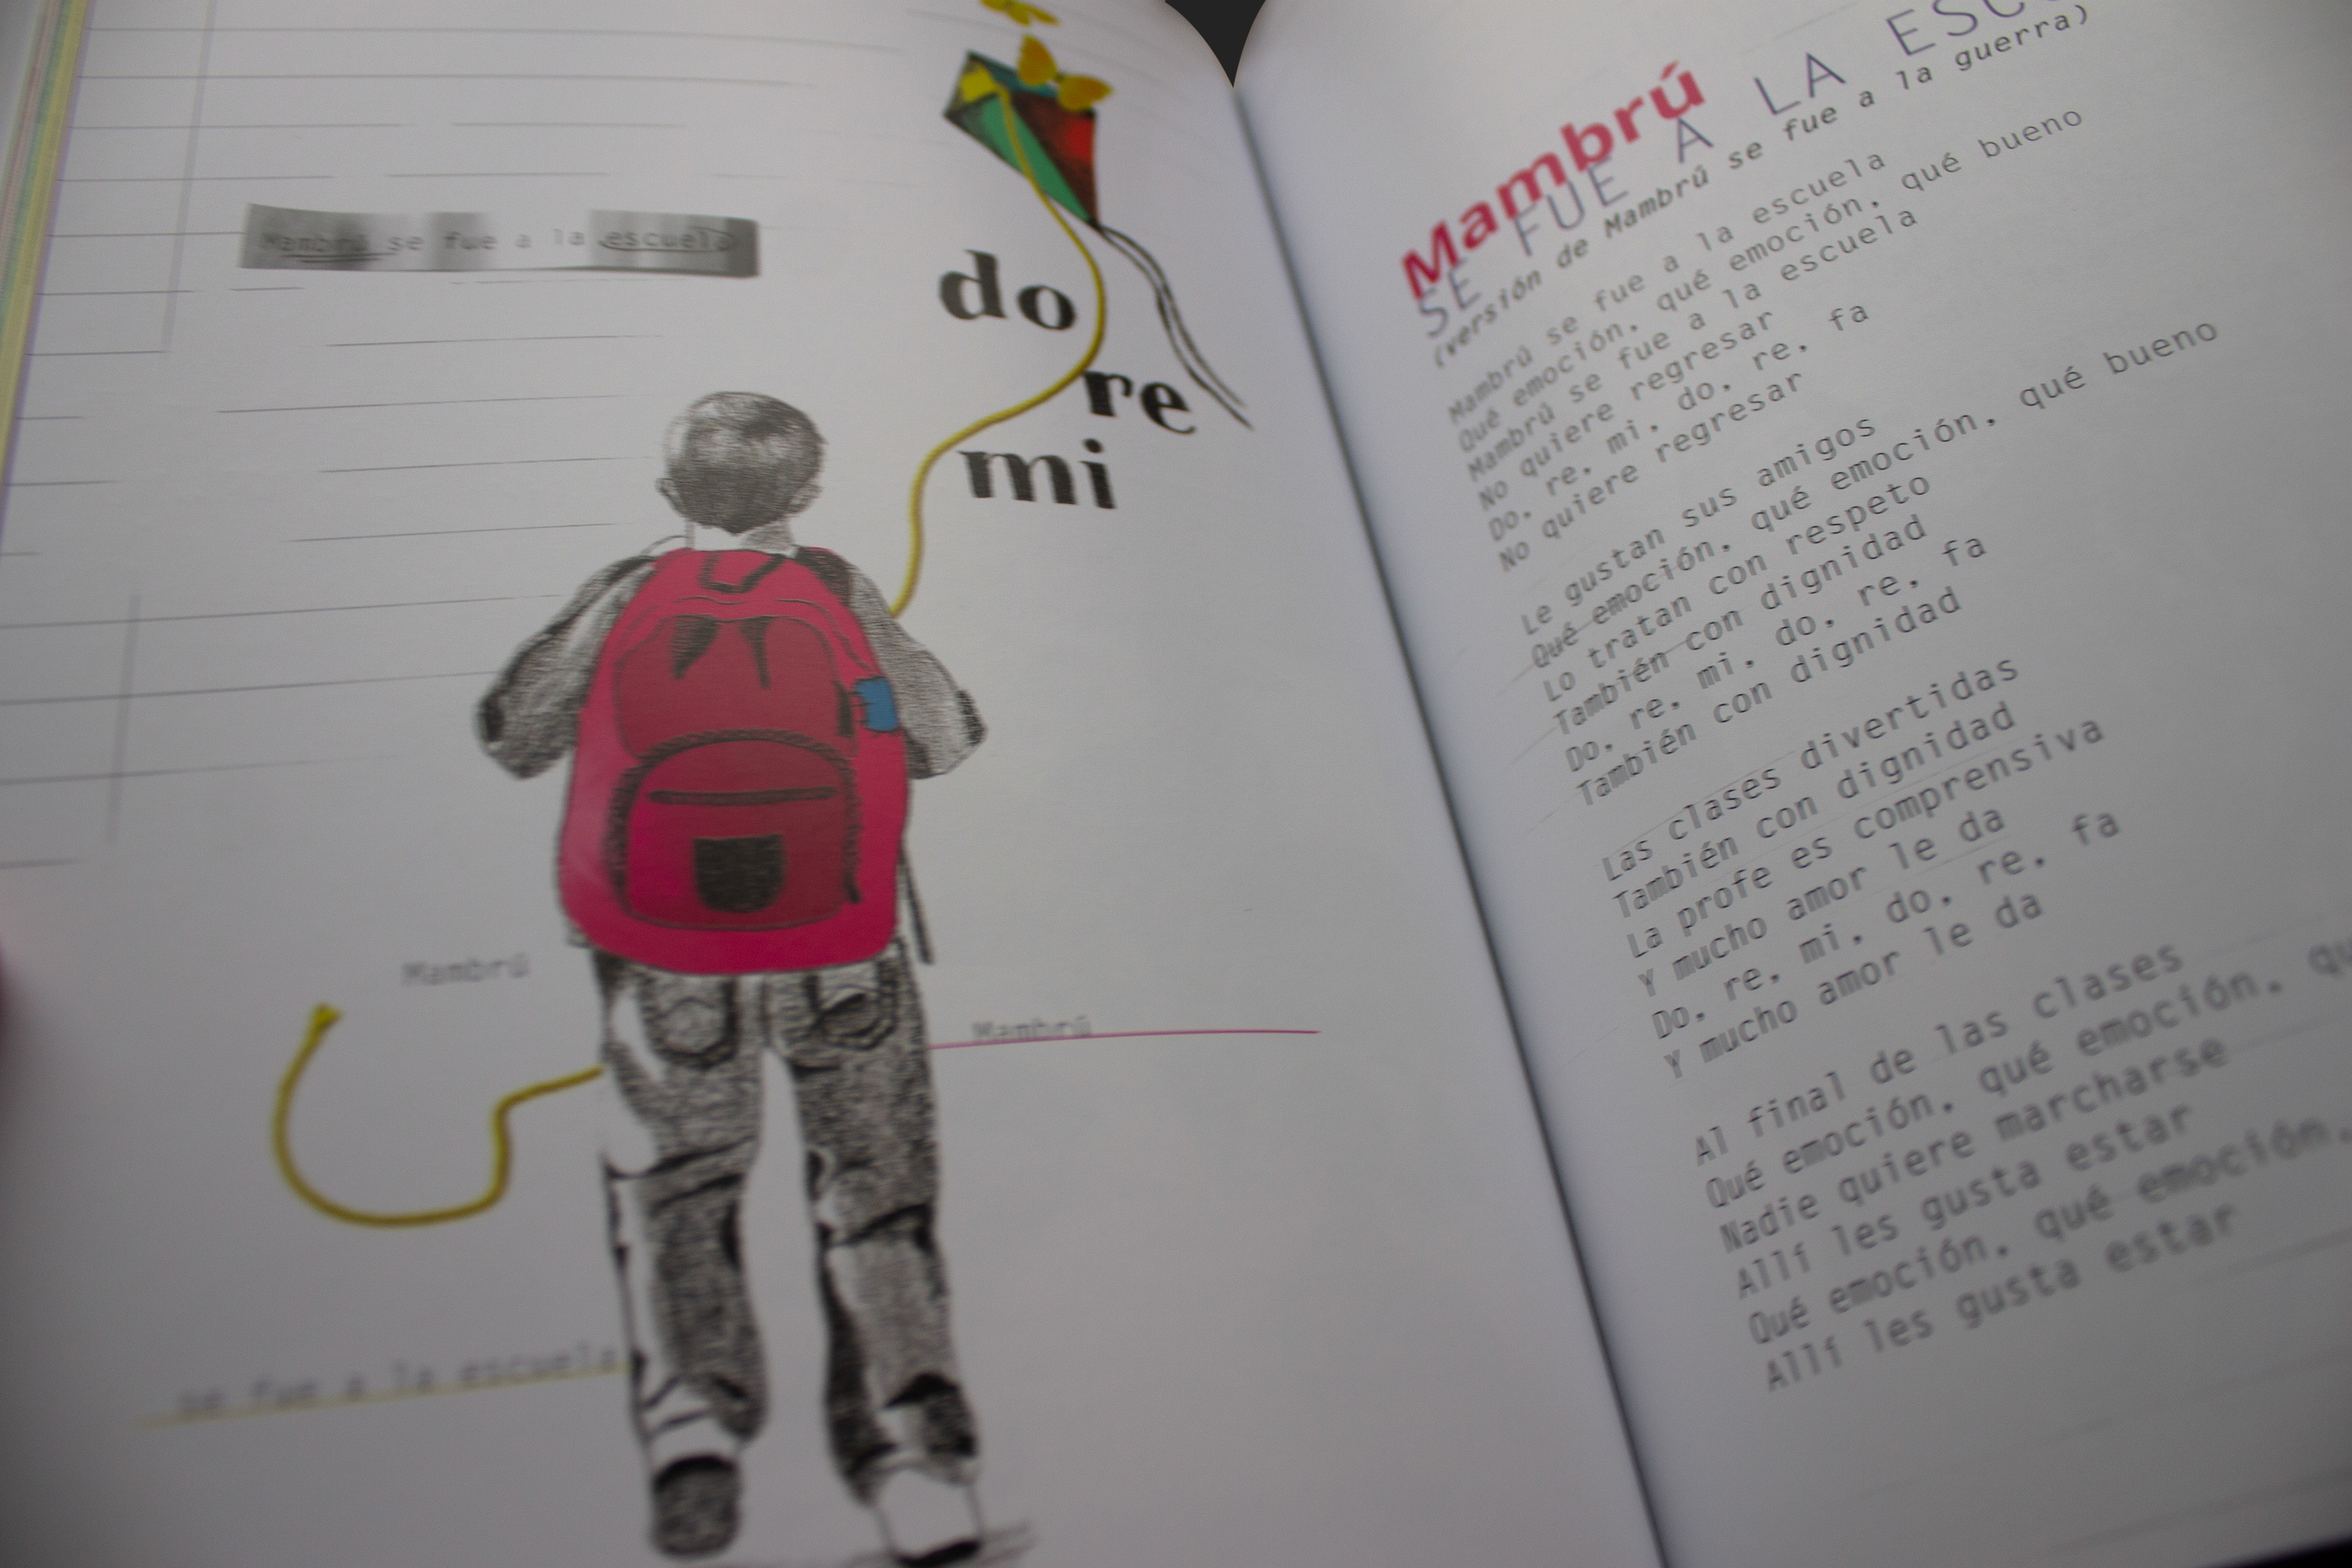 Mambrú se fue a la escuela
do
re
mi
Mambrú
Mambrú
se fue a la escuela
Mambrú
SE FUE A LA
(versión de Mambrú se fue a la guerra)
Mambrú se fue a la escuela
Qué emoción, qué emoción, qué bueno
Mambrú se fue a la escuela
No quiere regresar
Do, re, mi, do, re, fa
No quiere regresar
Le gustan sus amigos
Qué emoción, qué emoción, qué bueno
Lo tratan con respeto
También con dignidad
Do, re, mi, do, re, fa
También con dignidad
Las clases divertidas
También con dignidad
La profe es comprensiva
Y mucho amor le da
Do, re, mi, do, re, fa
Y mucho amor le da
Al final de las clases
Qué emoción, qué emoción,
Nadie quiere marcharse
Allí les gusta estar
Qué emoción, qué emoción,
Allí les gusta estar